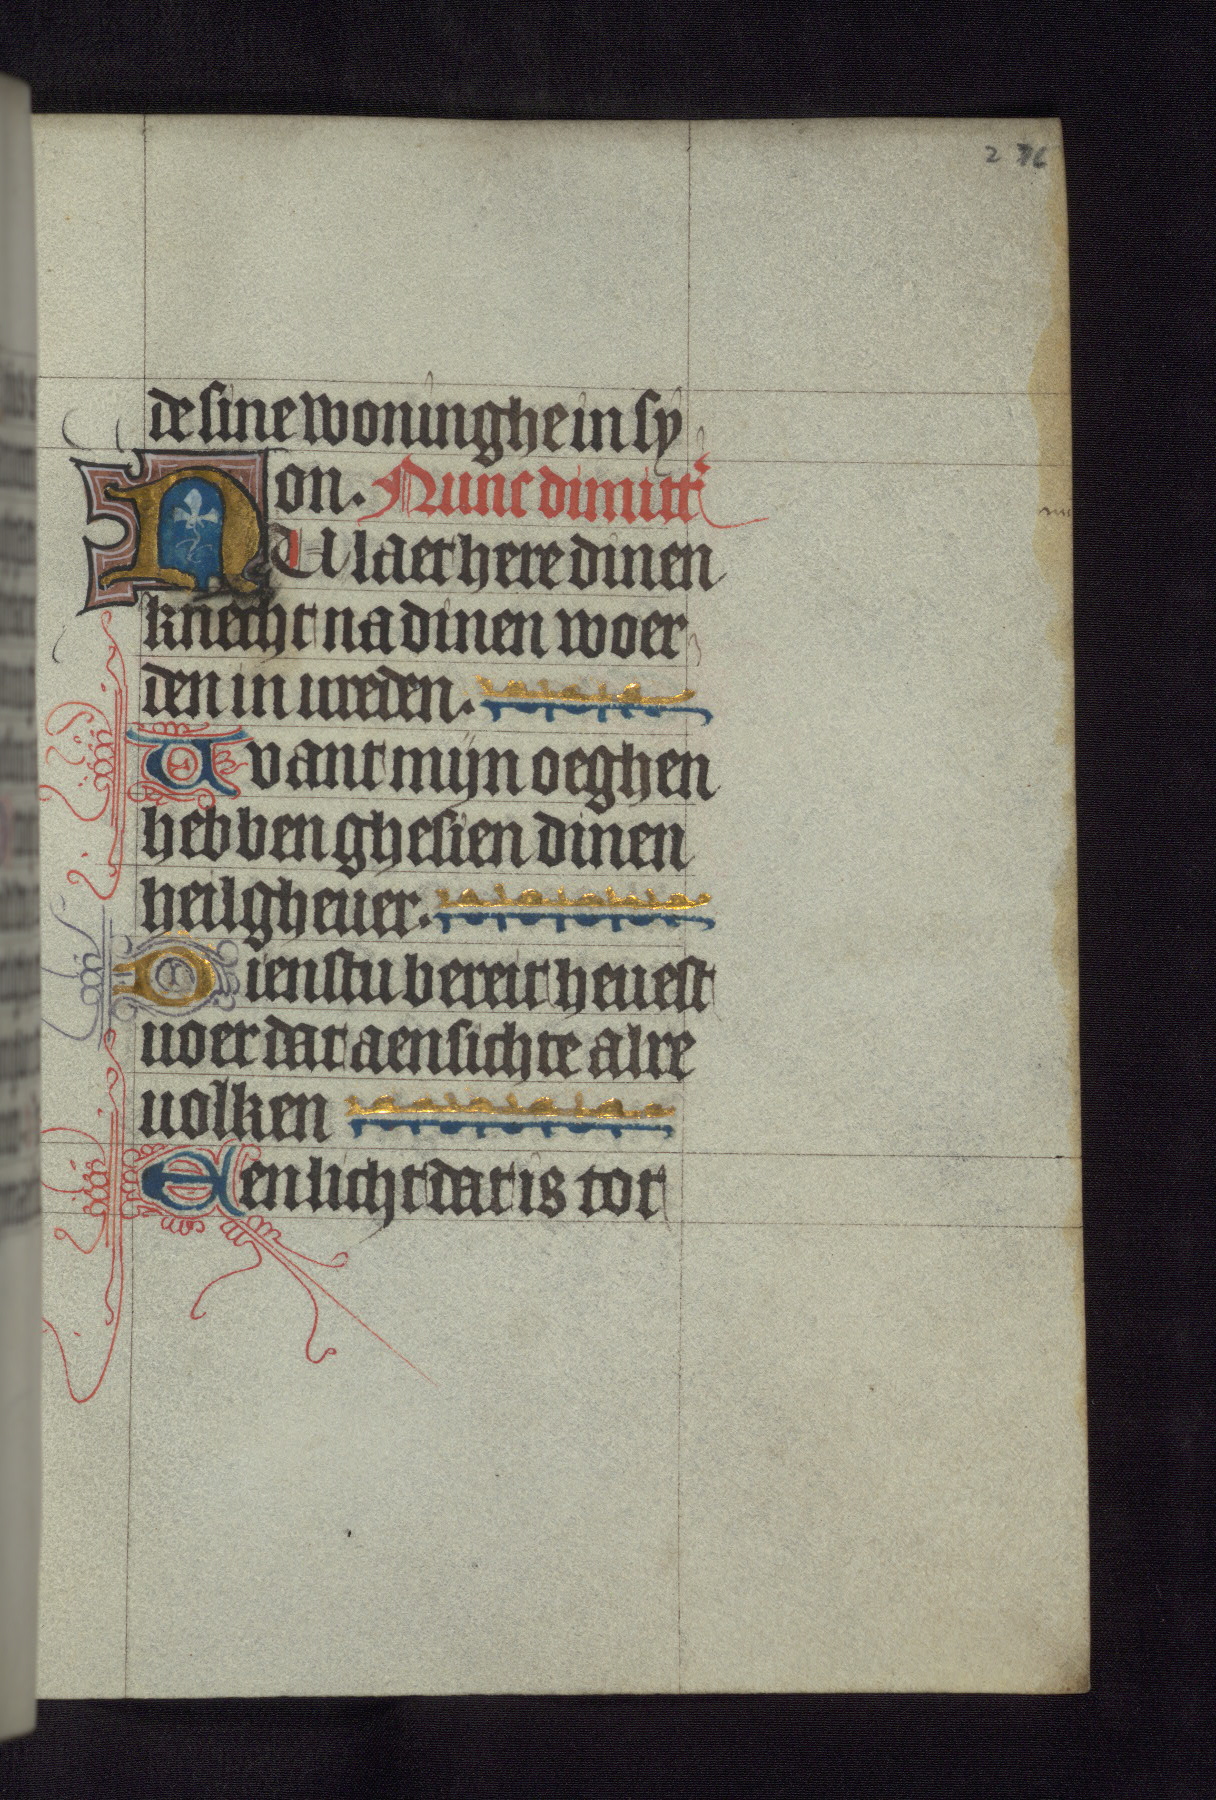 276
de sine woninghe in sy
on. Nunc dimitt
NU laet here dinen
knecht na dinen woer
den in ureden.
Want mijn oeghen
hebben ghesien dinen
heilgheuer.
Dienstu bereit heuest
uoer dat aensichte alre
uolken
Een licht dat is tot